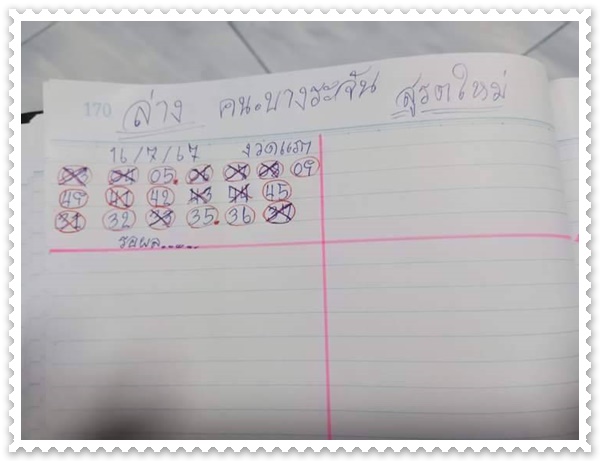 170 ล่าง คน.บางระจัน สูรตใหม่
16/7/67 งวดแรก
05. 09
49 41 42 43 44 45
31 32 33 35. 36 37
รอผล......